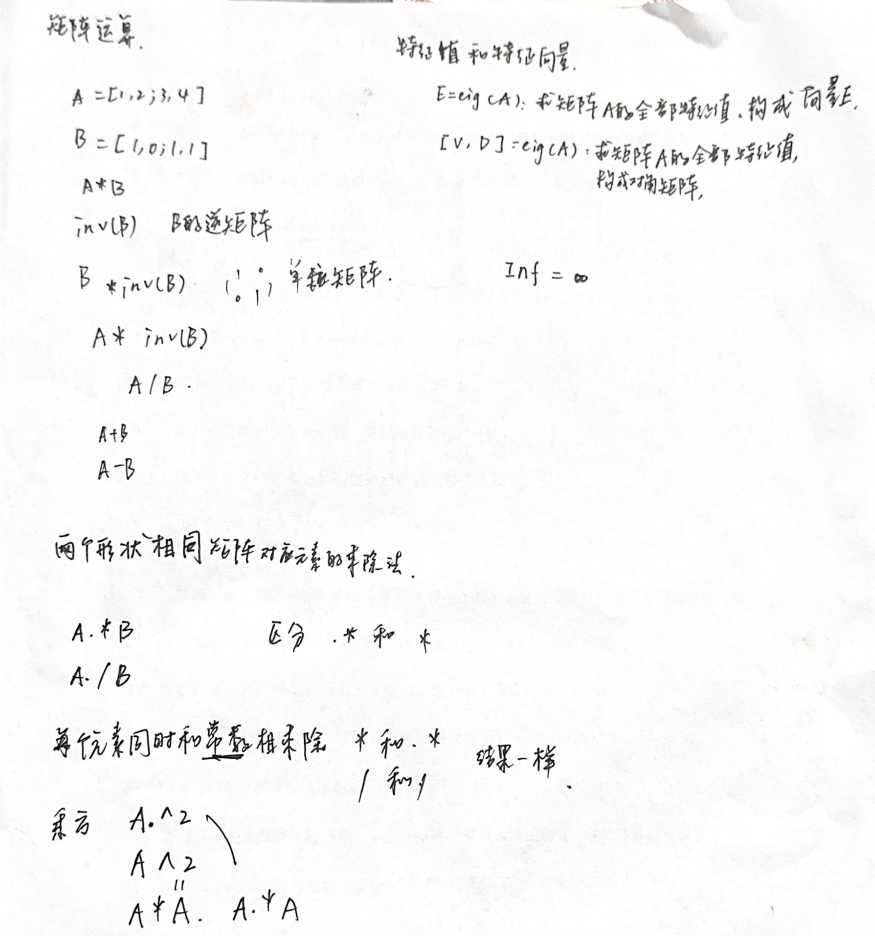 矩阵运算.
A = [1,2;3,4]
B = [1,0;1,1]
A*B
inv(B) B的逆矩阵
B *inv(B). (1 0 0 1) 单位矩阵.
A* inv(B)
A/B.
A+B
A-B
特征值和特征向量.
E=eig(A): 求矩阵A的全部特征值,构成向量E.
[V,D]=eig(A): 求矩阵A的全部特征值,
构成对角矩阵,
Inf = ∞
两个形状相同矩阵对应元素的乘除法.
A.*B 区分 .* 和 *
A./B
每个元素同时和常数相乘除 * 和 .* 结果一样.
/ 和 ./
乘方 A.^2
A^2
=
A*A. A.*A